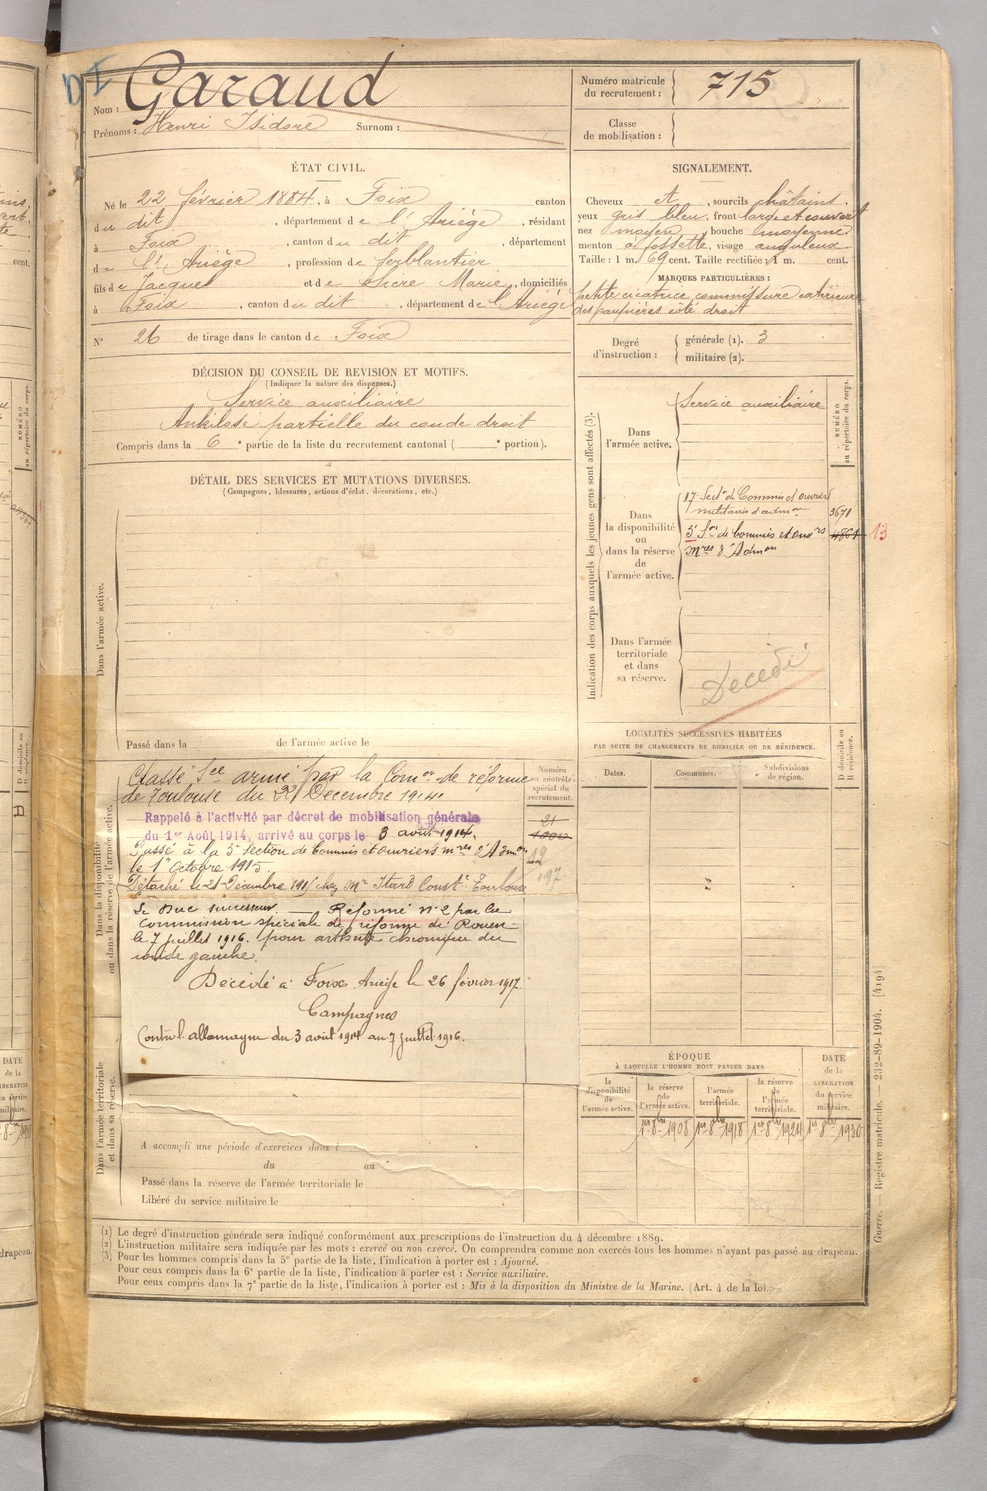 D I
Nom : Garaud
Prénoms : Henri Isidore Surnom :
Numéro matricule du recrutement : 715
Classe de mobilisation :
ÉTAT CIVIL.
Né le 22 février 1884, à Foix canton
du dit, département de l'Ariège, résidant
à Foix, canton du dit, département
de l'Ariège, profession de ferblantier
fils de Jacques et de Marie, domiciliés
à Foix, canton du dit, département de l'Ariège
N° 26 de tirage dans le canton de Foix
SIGNALEMENT.
Cheveux et, sourcils châtains.
yeux gris bleu, front large et couvert
nez moyen, bouche moyenne
menton à fossette, visage anguleux
Taille : 1 m. 69 cent. Taille rectifiée : 1 m. cent.
MARQUES PARTICULIÈRES :
petite cicatrice commissure extérieure
des paupières côté droit
Degré d'instruction : générale (1). 3
militaire (2).
DÉCISION DU CONSEIL DE REVISION ET MOTIFS.
(Indiquer la nature des dispenses.)
Service auxiliaire
Ankilose partielle du coude droit
Compris dans la 6e partie de la liste du recrutement cantonal ( e portion).
DÉTAIL DES SERVICES ET MUTATIONS DIVERSES.
(Campagnes, blessures, actions d'éclat, décorations, etc.)
Dans l'armée active.
Passé dans la de l'armée active le
Indication des corps auxquels les jeunes gens sont affectés (3).
NUMÉRO au répertoire du corps.
Dans l'armée active.
Service auxiliaire
Dans la disponibilité ou dans la réserve de l'armée active.
17 Secton de Commis et ouvriers
militaires d'admon 3671
3e Son de Commis et ouvrs 4861 13
mres d'Admon
Dans l'armée territoriale et dans sa réserve.
Décédé
LOCALITÉS SUCCESSIVES HABITÉES
PAR SUITE DE CHANGEMENTS DE DOMICILE OU DE RÉSIDENCE.
Dates. Communes. Subdivisions de région. D domicile ou R résidence.
Dans la disponibilité ou dans la réserve de l'armée active.
Numéro au contrôle spécial du recrutement.
Classé Sce armé par la Comon de réforme
de Toulouse du 22 Décembre 1914.
Rappelé à l'activité par décret de mobilisation générale
du 1er Août 1914, arrivé au corps le 3 août 1914.
Passé à la 3e Section de Commis et ouvriers mres d'Admon
le 1er Octobre 1915.
Détaché le 21 Décembre 1915 chez Mr Itard Constr Toulouse
Le Duc successeur. Réformé n° 2 par la
Commission spéciale de réforme de Rouen
le 7 juillet 1916. pour arthrite chronique du
coude gauche.
Décédé à Foix Ariège le 26 février 1917
Campagnes
Contre l'allemagne du 3 août 1914 au 7 juillet 1916.
Dans l'armée territoriale et dans sa réserve.
A accompli une période d'exercices dans l
du au
Passé dans la réserve de l'armée territoriale le
Libéré du service militaire le
ÉPOQUE
À LAQUELLE L'HOMME DOIT PASSER DANS
la disponibilité de l'armée active. la réserve de l'armée active. l'armée territoriale. la réserve de l'armée territoriale. DATE de la LIBÉRATION du service militaire.
1er 8bre 1908 1er 8bre 1918 1er 8bre 1924 1er 8bre 1930
(1) Le degré d'instruction générale sera indiqué conformément aux prescriptions de l'instruction du 4 décembre 1889.
(2) L'instruction militaire sera indiquée par les mots : exercé ou non exercé. On comprendra comme non exercés tous les hommes n'ayant pas passé au drapeau.
(3) Pour les hommes compris dans la 5e partie de la liste, l'indication à porter est : Ajourné.
Pour ceux compris dans la 6e partie de la liste, l'indication à porter est : Service auxiliaire.
Pour ceux compris dans la 7e partie de la liste, l'indication à porter est : Mis à la disposition du Ministre de la Marine. (Art. 4 de la loi.
Guerre. — Registre matricule. — 232-89-1904. [4194]